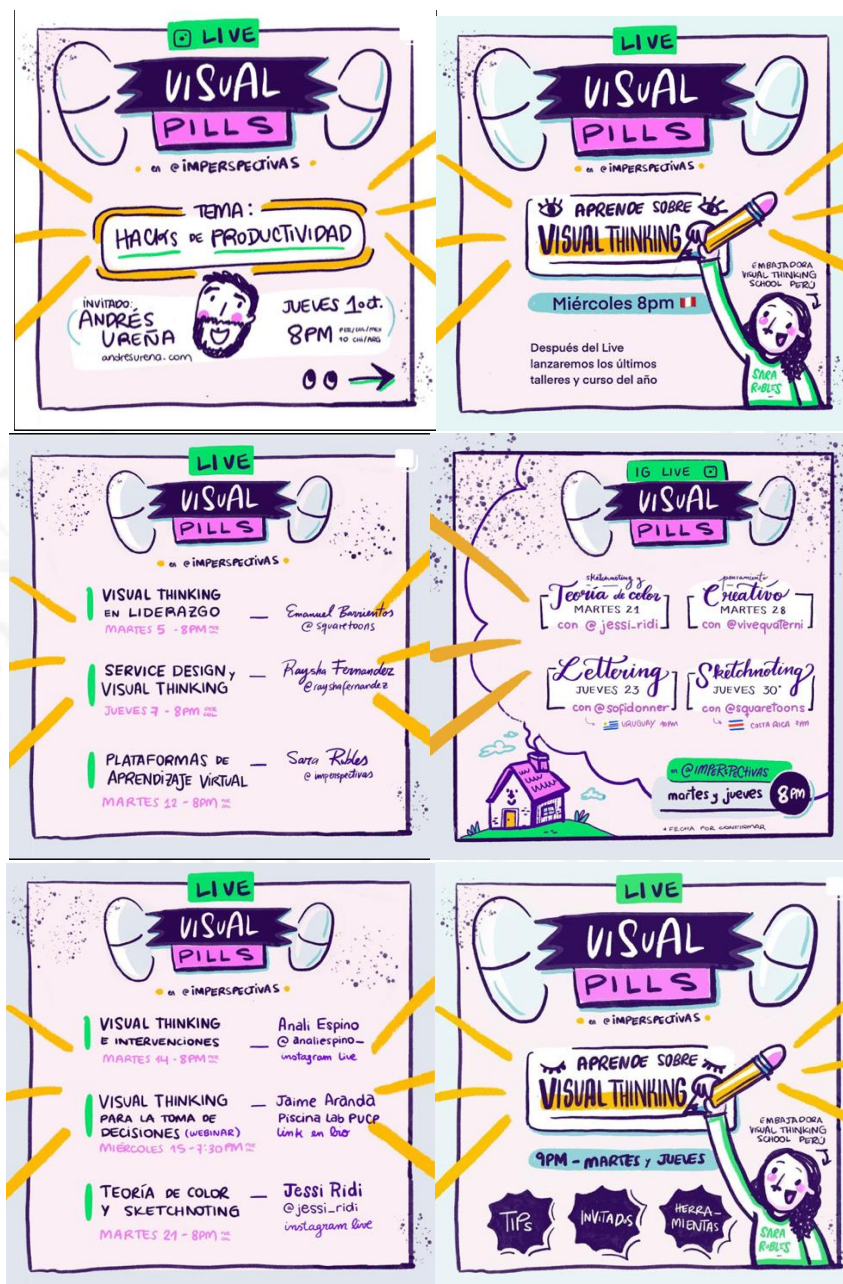 LIVE
VISUAL
PILLS
en @IMPERSPECTIVAS
TEMA:
HACKS DE PRODUCTIVIDAD
INVITADO:
ANDRÉS
UREÑA
andresurena.com
JUEVES 1 oct.
8PM PER/COL/MEX
10 CHI/ARG
LIVE
VISUAL
PILLS
en @IMPERSPECTIVAS
APRENDE SOBRE
VISUAL THINKING
EMBAJADORA
VISUAL THINKING
SCHOOL PERÚ
Miércoles 8pm
Después del Live
lanzaremos los últimos
talleres y curso del año
SARA
ROBLES
LIVE
VISUAL
PILLS
en @IMPERSPECTIVAS
VISUAL THINKING
EN LIDERAZGO
MARTES 5 - 8PM
Emanuel Barrientos
@squaretoons
SERVICE DESIGN y
VISUAL THINKING
JUEVES 7 - 8PM
Raysha Fernandez
@rayshafernandez
PLATAFORMAS DE
APRENDIZAJE VIRTUAL
MARTES 12 - 8PM
Sara Robles
@imperspectivas
IG LIVE
VISUAL
PILLS
sketchnoting y
Teoría de color
MARTES 21
con @jessi_ridi
pensamiento
Creativo
MARTES 28
con @vivequaterni
Lettering
JUEVES 23
con @sofidonner
URUGUAY 10PM
Sketchnoting
JUEVES 30*
con @squaretoons
COSTA RICA 7PM
en @IMPERSPECTIVAS
martes y jueves 8PM
*FECHA POR CONFIRMAR
LIVE
VISUAL
PILLS
en @IMPERSPECTIVAS
VISUAL THINKING
E INTERVENCIONES
MARTES 14 - 8PM
Anali Espino
@analiespino_
instagram live
VISUAL THINKING
PARA LA TOMA DE
DECISIONES (WEBINAR)
MIÉRCOLES 15 - 7:30PM
Jaime Aranda
Piscina Lab PUCP
link en bio
TEORÍA DE COLOR
Y SKETCHNOTING
MARTES 21 - 8PM
Jessi Ridi
@jessi_ridi
instagram live
LIVE
VISUAL
PILLS
en @IMPERSPECTIVAS
APRENDE SOBRE
VISUAL THINKING
EMBAJADORA
VISUAL THINKING
SCHOOL PERÚ
9PM - MARTES y JUEVES
TIPs
INVITADOS
HERRA-
MIENTAS
SARA
ROBLES